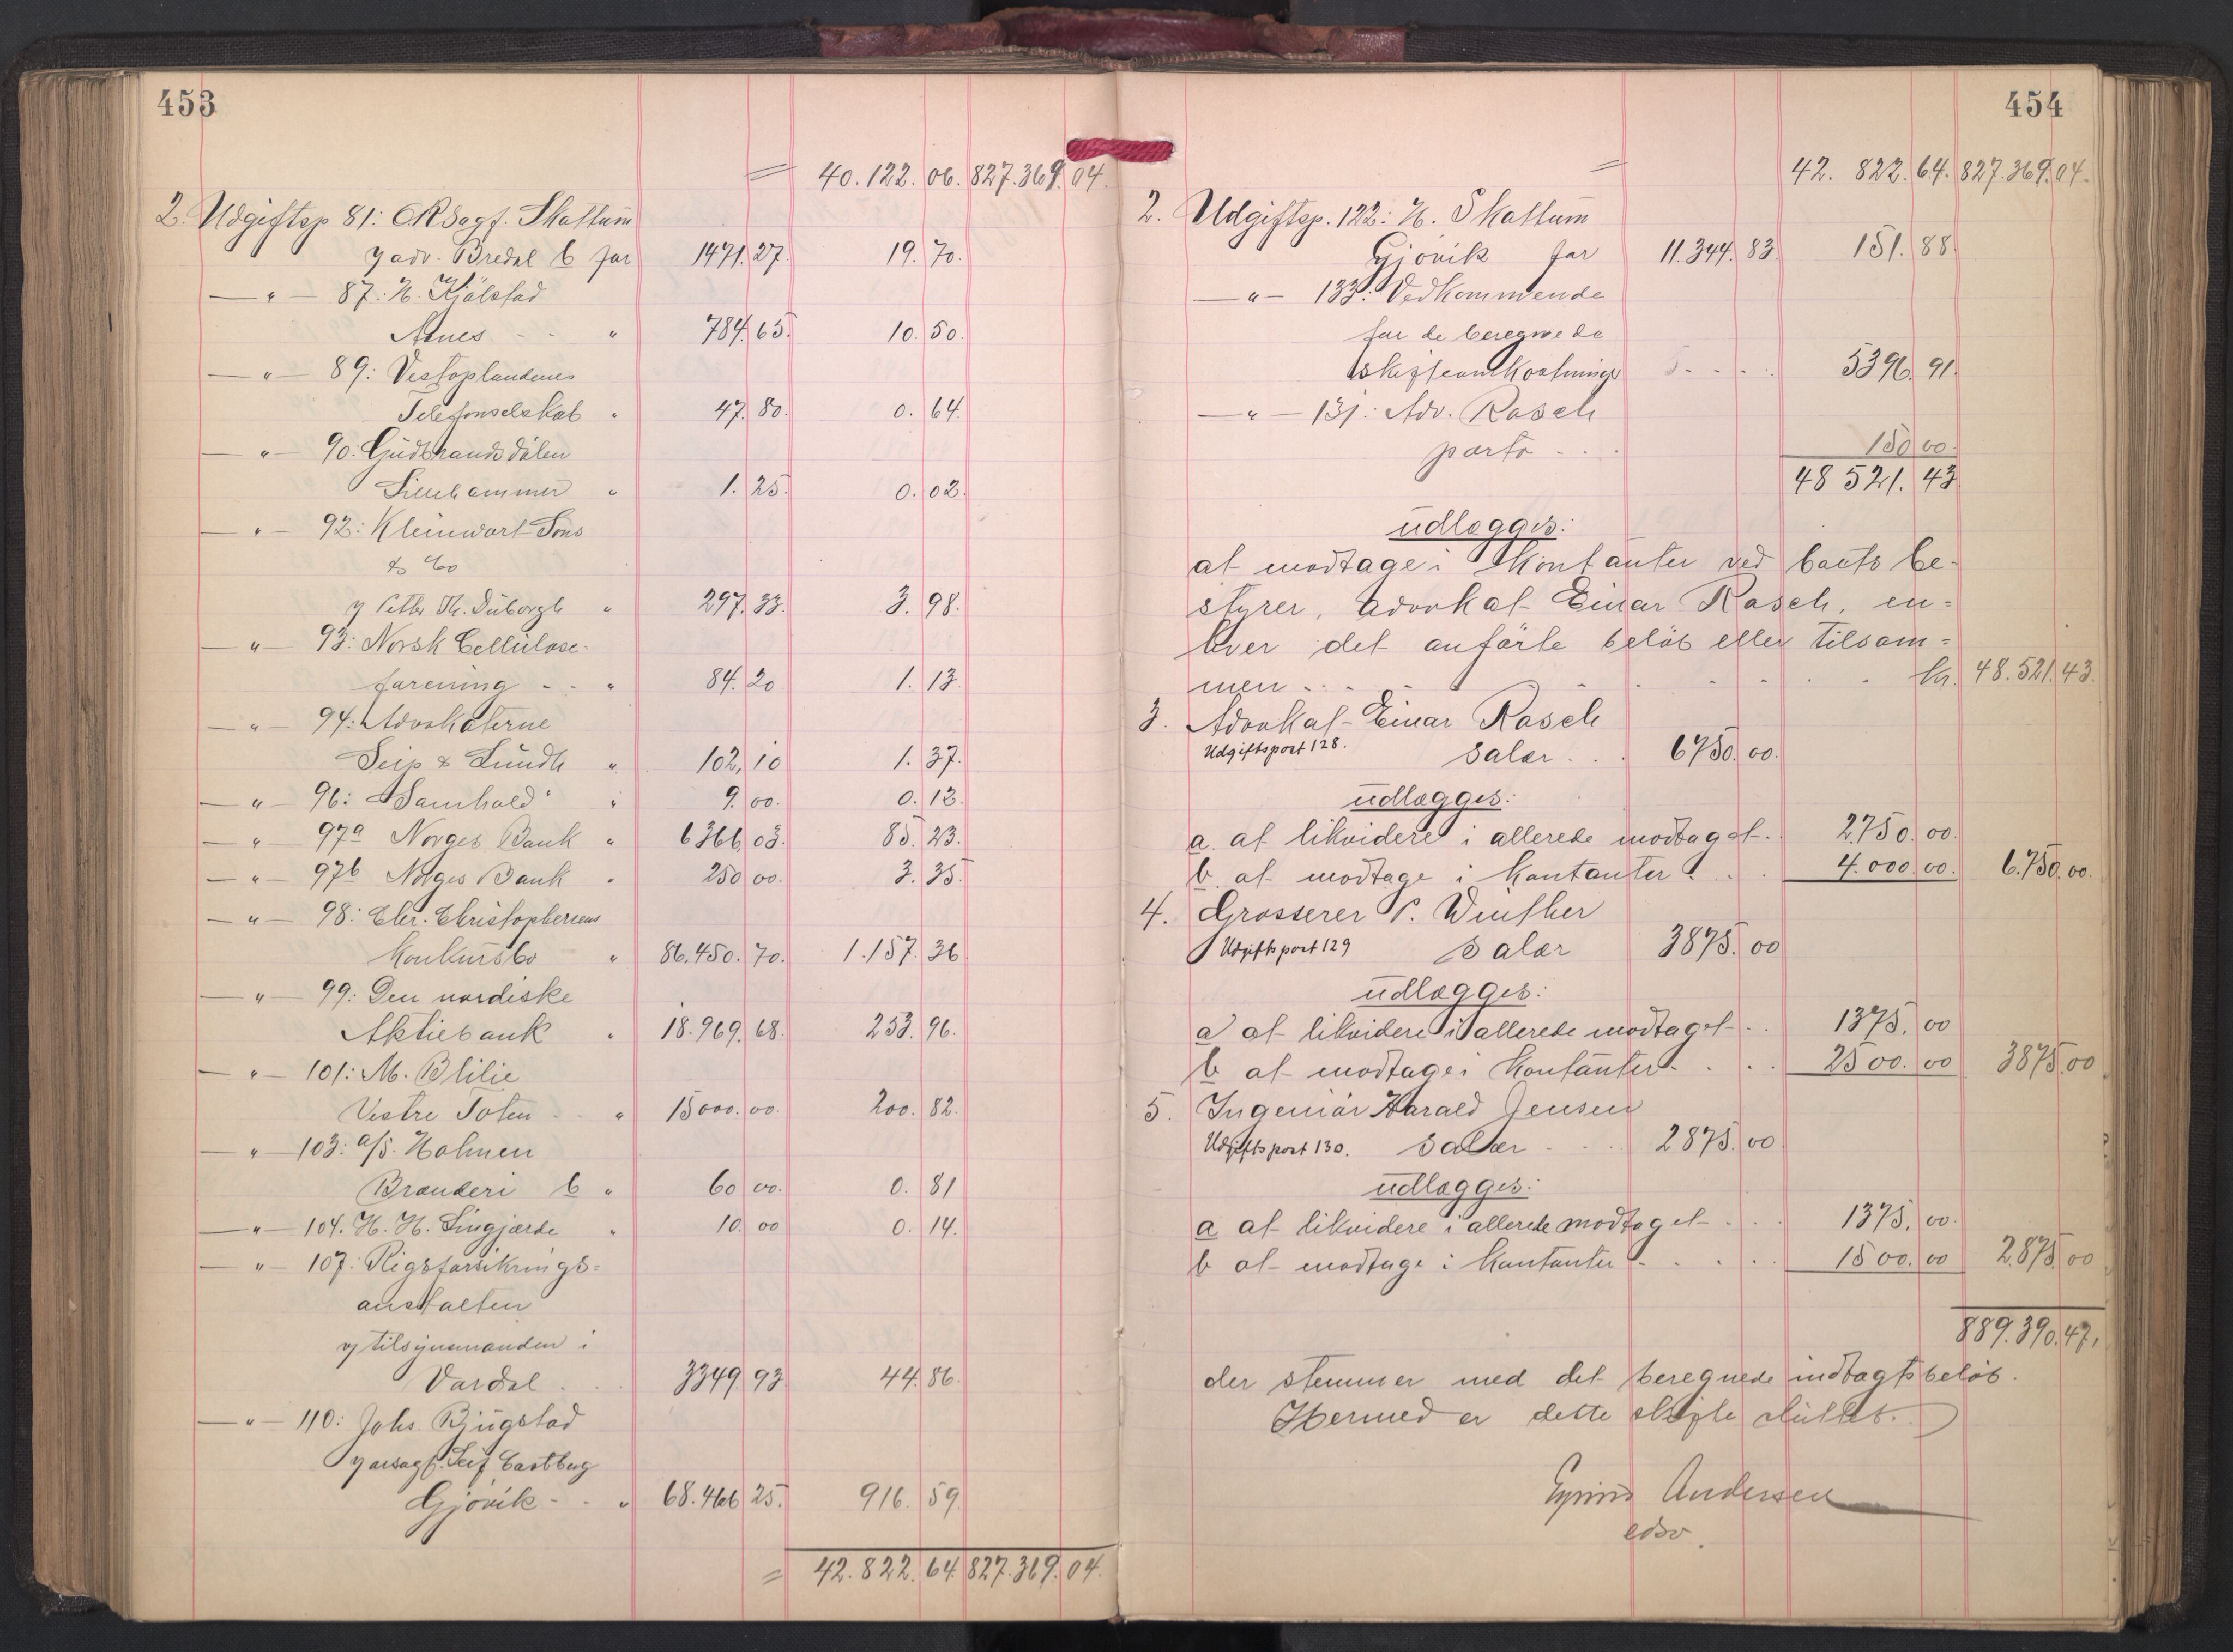 453
= 40.122.06. 827.369.04.
2. Udgiftsp 81: ORSagf. Skattum
v adv. Bredal b for 1471.27. 19.70.
— " — 87: H. Kjölstad
Aanes - - " 784.65. 10.50.
— " — 89: Vestoplandenes
Telefonselskab " 47.80. 0.64.
— " — 90: Gudbrandsdölen
Lillehammer " 1.25. 0.02.
— " — 92: Kleinwort Sons
& Co
v Petter Th. Duborgh " 297.33. 3.98.
— " — 93: Norsk Cellulose-
forening - - " 84.20 1.13.
— " — 94: Advokaterne
Seip & Lundh " 102,10 1.37.
— " — 96: "Samhold" " 9.00. 0.12.
— " — 97a Norges Bank " 6366.03. 85.23.
— " — 97b Norges Bank " 250 00. 3.35.
— " — 98: Chr. Christophersens
Konkursbo " 86.450.70. 1.157.36
— " — 99: Den nordiske
Aktiebank " 18.969.68. 253.96.
— " — 101: M. Blilie
Vestre Toten - - " 15000.00. 200.82.
— " — 103: a/s. Holmen
Brænderi b " 60 00. 0.81
— " — 104. H. H. Lingjærde " 10.00 0.14.
— " — 107: Rigsforsikrings=
anstalten
v tilsynsmanden i
Vardal . . . 3349.93 44.86.
— " — 110: Johs. Bjugstad
v orsagf. Leif Castberg
Gjövik - - " 68.466 25. 916.59.
= 42.822.64. 827.369.04.
454
= 42.822.64. 827.369.04.
2. Udgiftsp. 122: H. Skattum
Gjövik for 11.344.83. 151.88.
— " — 133: Vedkommende
for de beregnede
skifteomkostninger - - - - 5396.91.
— " — 131: Adv. Rasch
porto - . . 150 00.
48 521.43
udlægges:
at modtage i Kontanter ved boets be-
styrer, advokat Einar Rasch, en=
hver det anförte belöb eller tilsam=
men - - - - - - - - kr. 48.521.43.
3. Advokat Einar Rasch
Udgiftspost 128. salær . . . 6750.00.
udlægges:
a. at likvidere i allerede modtaget . 2750.00.
b. at modtage i Kontanter . . . 4.000.00. 6.750.00.
4. Grosserer P. Winther
Udgiftspost 129 salær 3875.00
udlægges:
a at likvidere i allerede modtaget . . 1375.00
b at modtage i Kontanter . . . . 2500.00 3875.00
5. Ingeniör Harald Jensen
Udgiftspost 130. salær - . . . 2875.00
udlægges:
a at likvidere i allerede modtaget . . . 1375.00.
b at modtage i Kontanter . . . . 1500.00 2.875.00
889.390.47.
der stemmer med det beregnede indtægtsbelöb.
Hermed er dette skifte sluttet.
Eyvind Andersen
edsv.